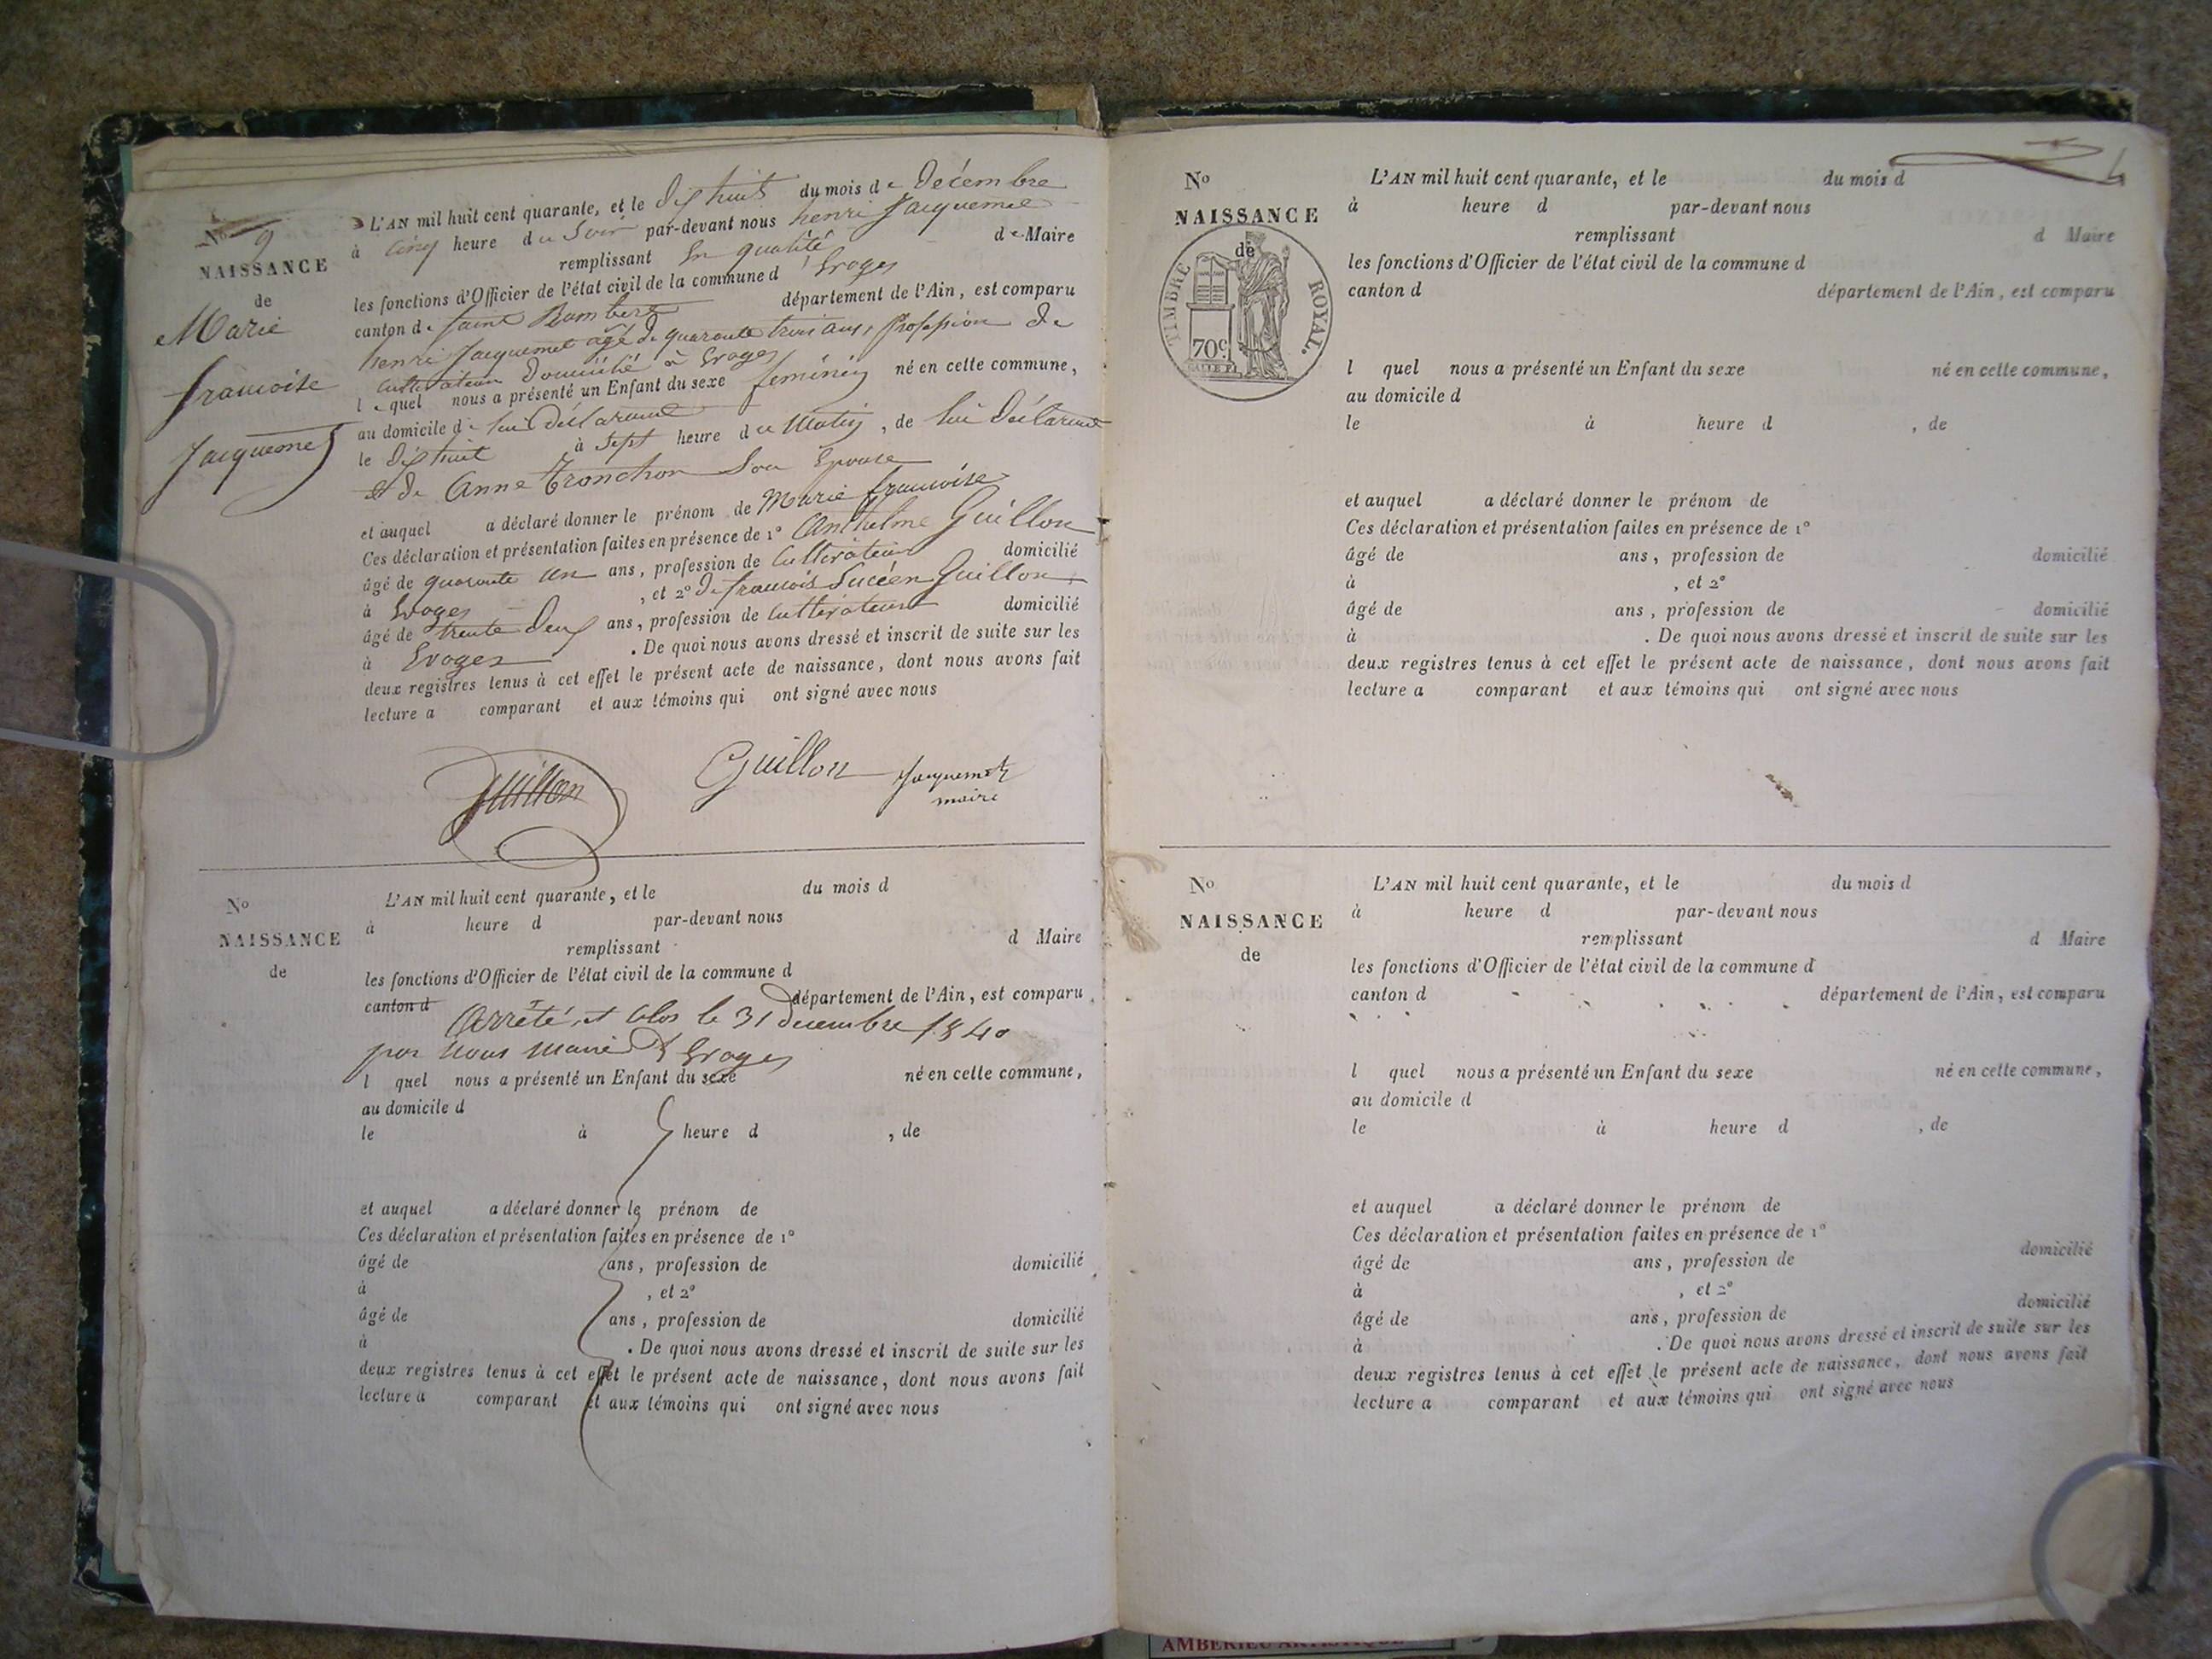 No 9
NAISSANCE
de
Marie
francoise
Jacquemet
L'AN mil huit cent quarante, et le dix huit du mois de Décembre
à cinq heure du Soir par-devant nous henri Jacquemet
remplissant En qualité de Maire
les fonctions d'Officier de l'état civil de la commune d'Evoges
canton de Saint Rambert département de l'Ain, est comparu
henri Jacquemet agé de quarante trois ans, profession de
cultivateur Domicilié à Evoges
lequel nous a présenté un Enfant du sexe féminin né en cette commune,
au domicile de lui Déclarant
le dix huit à Sept heure du Matin, de lui Déclarant
et de Anne tronchon Son Epouse
et auquel a déclaré donner le prénom de Marie francoise
Ces déclaration et présentation faites en présence de 1° Anthelme Guillon
âgé de quarante un ans, profession de Cultivateur domicilié
à Evoges, et 2° De francois Lucien Guillon
âgé de trente Deux ans, profession de Cultivateur domicilié
à Evoges. De quoi nous avons dressé et inscrit de suite sur les
deux registres tenus à cet effet le présent acte de naissance, dont nous avons fait
lecture a comparant et aux témoins qui ont signé avec nous
Guillon Guillon Jacquemet
maire
No
NAISSANCE
de
L'AN mil huit cent quarante, et le du mois d
à heure d par-devant nous
remplissant d Maire
les fonctions d'Officier de l'état civil de la commune d
canton d département de l'Ain, est comparu
Arrêté et Clos le 31 Decembre 1840
par Nous Maire D'Evoges
l quel nous a présenté un Enfant du sexe né en cette commune,
au domicile d
le à heure d , de
et auquel a déclaré donner le prénom de
Ces déclaration et présentation faites en présence de 1°
âgé de ans, profession de domicilié
à , et 2°
âgé de ans, profession de domicilié
à . De quoi nous avons dressé et inscrit de suite sur les
deux registres tenus à cet effet le présent acte de naissance, dont nous avons fait
lecture a comparant et aux témoins qui ont signé avec nous
No
NAISSANCE
de
TIMBRE ROYAL.
70c
L'AN mil huit cent quarante, et le du mois d
à heure d par-devant nous
remplissant d Maire
les fonctions d'Officier de l'état civil de la commune d
canton d département de l'Ain, est comparu
l quel nous a présenté un Enfant du sexe né en cette commune,
au domicile d
le à heure d , de
et auquel a déclaré donner le prénom de
Ces déclaration et présentation faites en présence de 1°
âgé de ans, profession de domicilié
à , et 2°
âgé de ans, profession de domicilié
à . De quoi nous avons dressé et inscrit de suite sur les
deux registres tenus à cet effet le présent acte de naissance, dont nous avons fait
lecture a comparant et aux témoins qui ont signé avec nous
No
NAISSANCE
de
L'AN mil huit cent quarante, et le du mois d
à heure d par-devant nous
remplissant d Maire
les fonctions d'Officier de l'état civil de la commune d
canton d département de l'Ain, est comparu
l quel nous a présenté un Enfant du sexe né en cette commune,
au domicile d
le à heure d , de
et auquel a déclaré donner le prénom de
Ces déclaration et présentation faites en présence de 1°
âgé de ans, profession de domicilié
à , et 2°
âgé de ans, profession de domicilié
à . De quoi nous avons dressé et inscrit de suite sur les
deux registres tenus à cet effet le présent acte de naissance, dont nous avons fait
lecture a comparant et aux témoins qui ont signé avec nous
AMBERIEU ARTISTIQUE